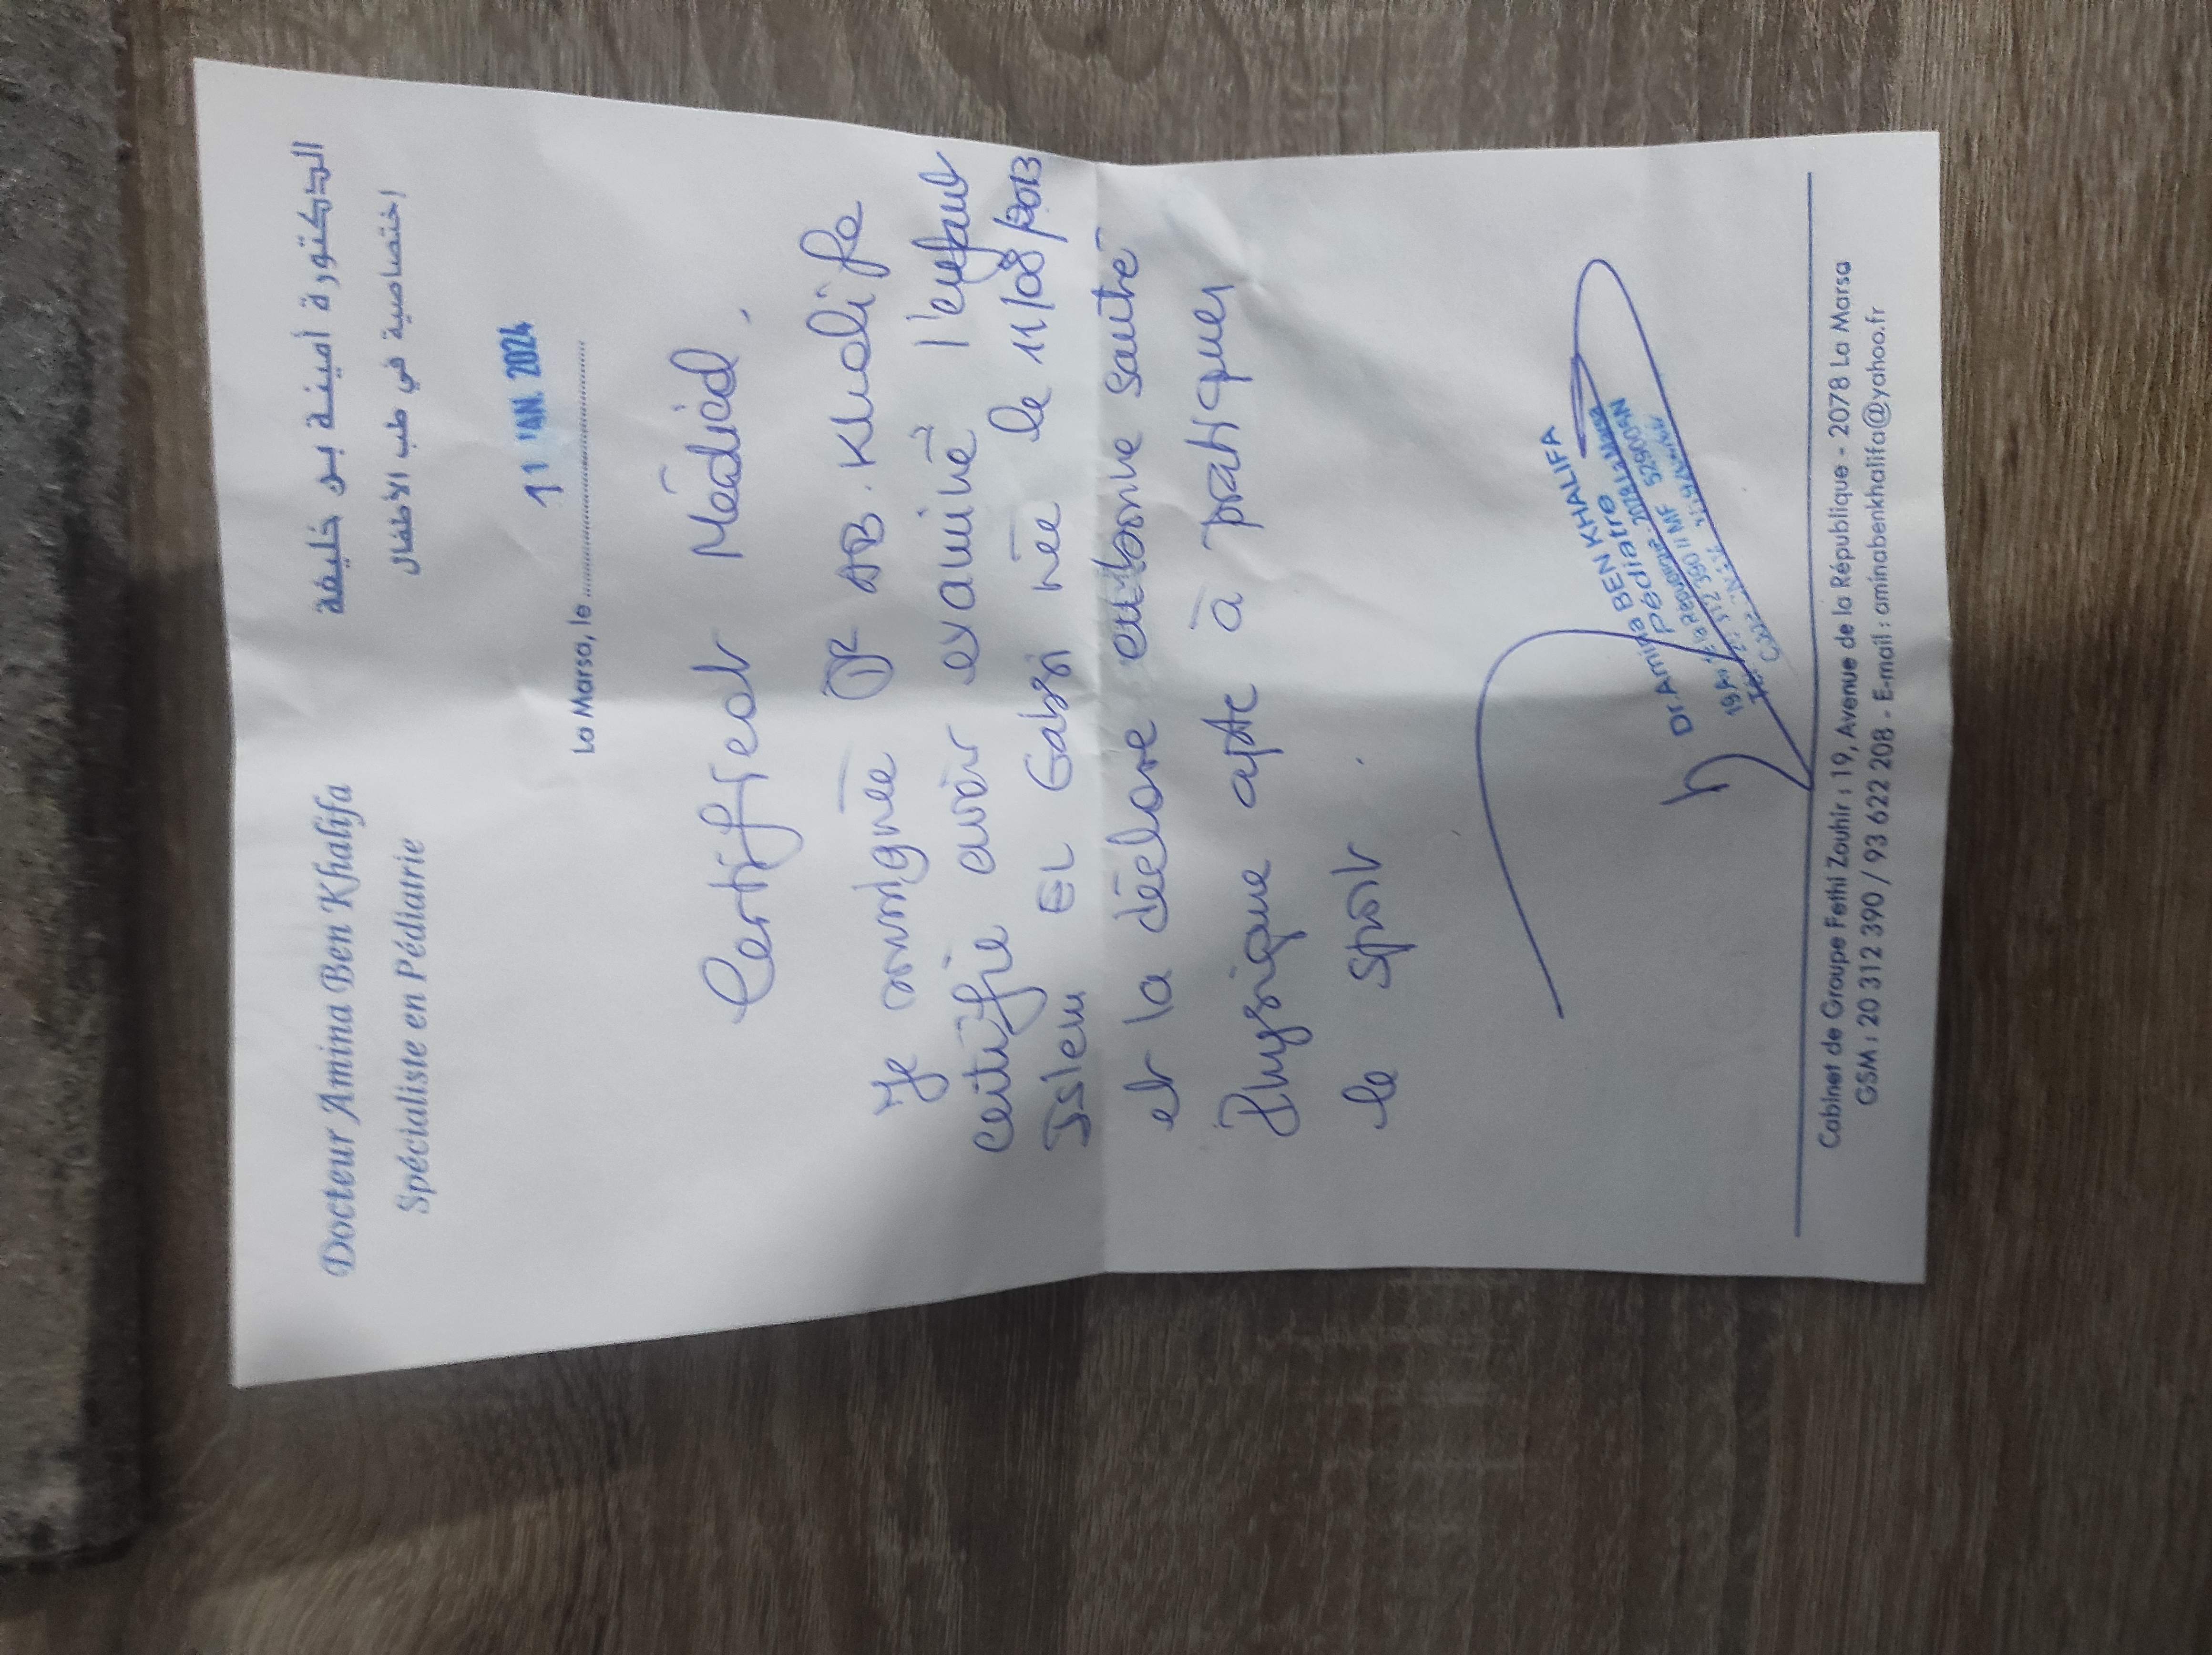 Docteur Amina Ben Khalifa
Spécialiste en Pédiatrie
الدكتورة أمينة بن خليفة
إختصاصية في طب الأطفال
11 JAN. 2024
La Marsa, le
Certificat Médical.
Je soussignée Dr AB. Khalifa
certifie avoir examiné l'enfant
Islem EL Gabsi née le 11/08/2013
et la déclare en bonne santé
Physique apte à pratiquer
le sport.
Dr Amina BEN KHALIFA
Pédiatre
19 Av. de la République 2078 La Marsa
Cabinet de Groupe Fethi Zouhir : 19, Avenue de la République - 2078 La Marsa
GSM : 20 312 390 / 93 622 208 - E-mail : aminabenkhalifa@yahoo.fr